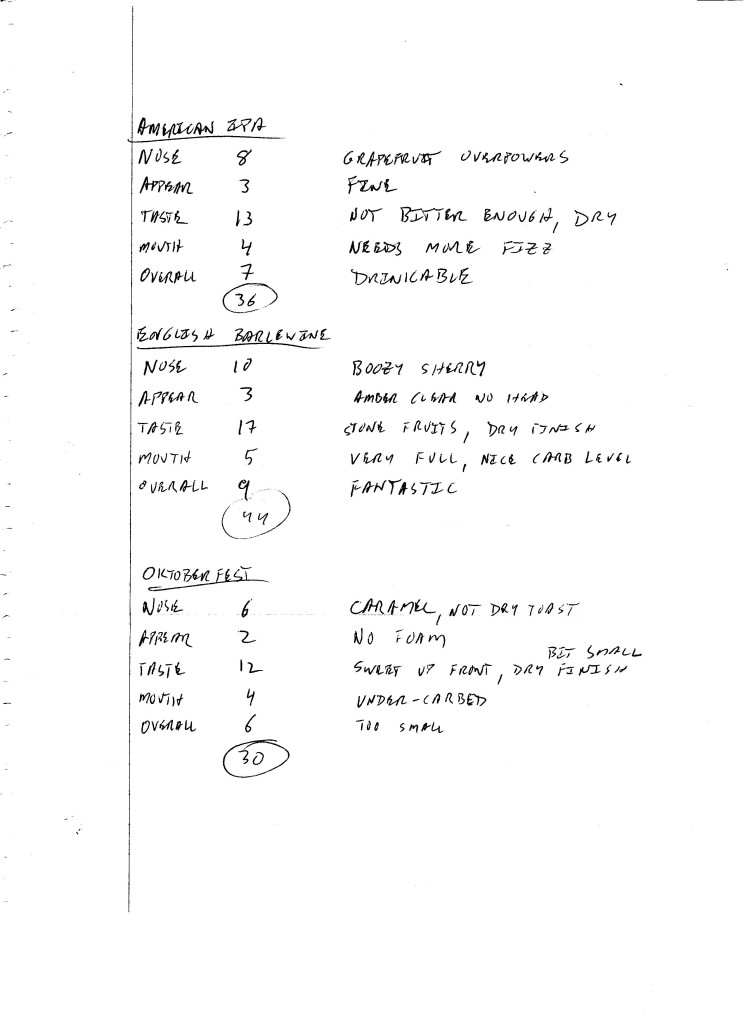 AMERICAN IPA
NOSE 8 GRAPEFRUIT OVERPOWERS
APPEAR 3 FINE
TASTE 13 NOT BITTER ENOUGH, DRY
MOUTH 4 NEEDS MORE FIZZ
OVERALL 7 DRINKABLE
36
ENGLISH BARLEWINE
NOSE 10 BOOZY SHERRY
APPEAR 3 AMBER CLEAR NO HEAD
TASTE 17 STONE FRUITS, DRY FINISH
MOUTH 5 VERY FULL, NICE CARB LEVEL
OVERALL 9 FANTASTIC
44
OKTOBERFEST
NOSE 6 CARAMEL, NOT DRY TOAST
APPEAR 2 NO FOAM
BIT SMALL
TASTE 12 SWEET UP FRONT, DRY FINISH
MOUTH 4 UNDER-CARBED
OVERALL 6 TOO SMALL
30